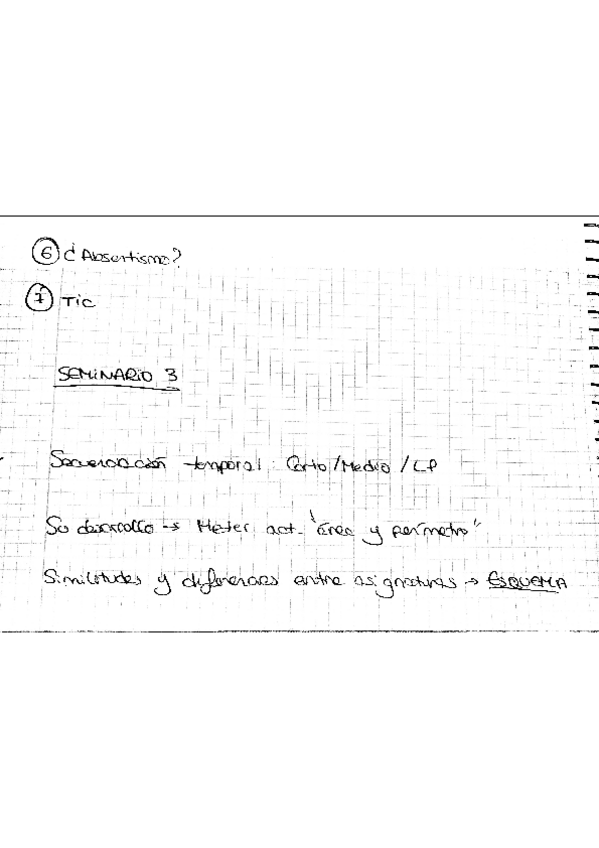 ⑥ ¿Absentismo?
⑦ Tic
SEMINARIO 3
Secuenciación temporal: Corto/Medio/LP
Su desarrollo → Meter act. "área y perímetro"
Similitudes y diferencias entre asignaturas → ESQUEMA